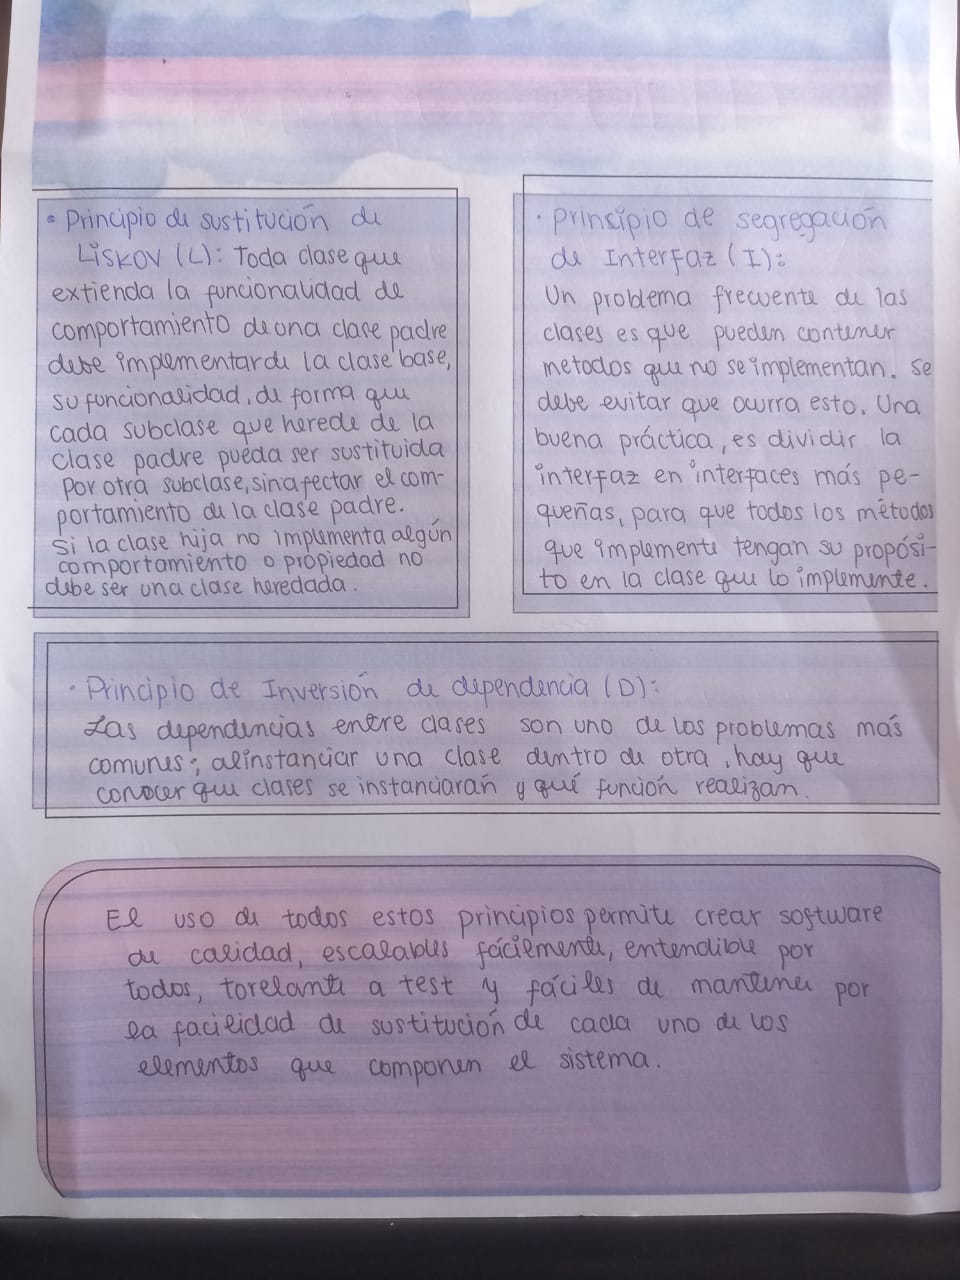 • Principio de sustitución de
Liskov (L): Toda clase que
extienda la funcionalidad de
comportamiento de una clase padre
debe implementar de la clase base,
su funcionalidad, de forma que
cada subclase que herede de la
clase padre pueda ser sustituida
por otra subclase, sin afectar el com-
portamiento de la clase padre.
Si la clase hija no implementa algún
comportamiento o propiedad no
debe ser una clase heredada.
• Principio de segregación
de Interfaz (I):
Un problema frecuente de las
clases es que pueden contener
metodos que no se implementan. Se
debe evitar que ocurra esto. Una
buena práctica, es dividir la
interfaz en interfaces más pe-
queñas, para que todos los métodos
que implemente tengan su propósi-
to en la clase que lo implemente.
• Principio de Inversión de dependencia (D):
Las dependencias entre clases son uno de los problemas más
comunes; al instanciar una clase dentro de otra, hay que
conocer que clases se instanciarán y qué función realizan.
El uso de todos estos principios permite crear software
de calidad, escalables fácilmente, entendible por
todos, torelante a test y fáciles de mantener por
la facilidad de sustitución de cada uno de los
elementos que componen el sistema.